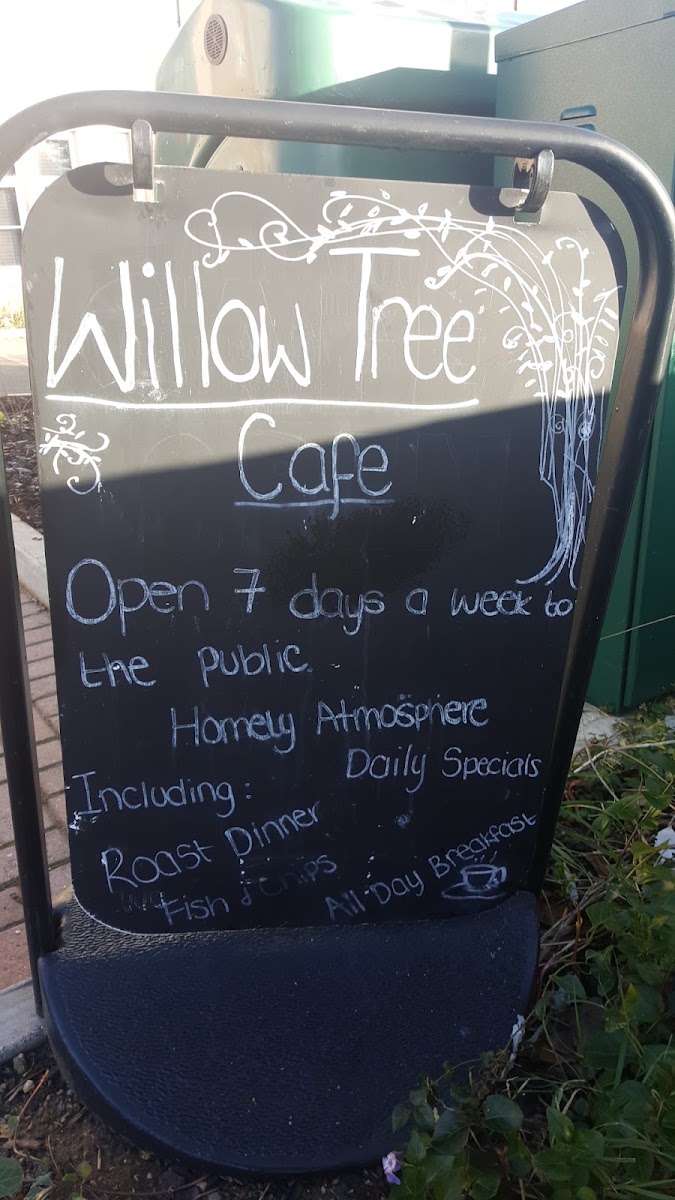 Willow Tree
Cafe
Open 7 days a week to
the public.
Homely Atmosphere
Daily Specials
Including:
Roast Dinner
Fish & Chips
All-Day Breakfast